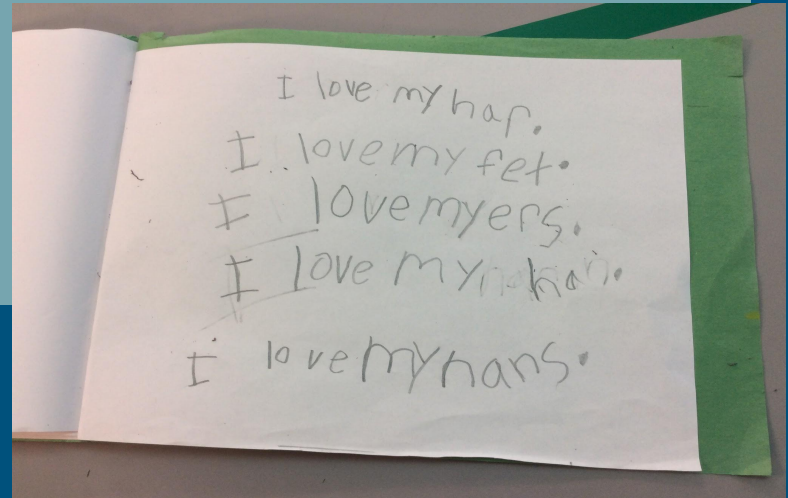 I love my har.
I love my fet.
I love my ers.
I love my han.
I love my hans.